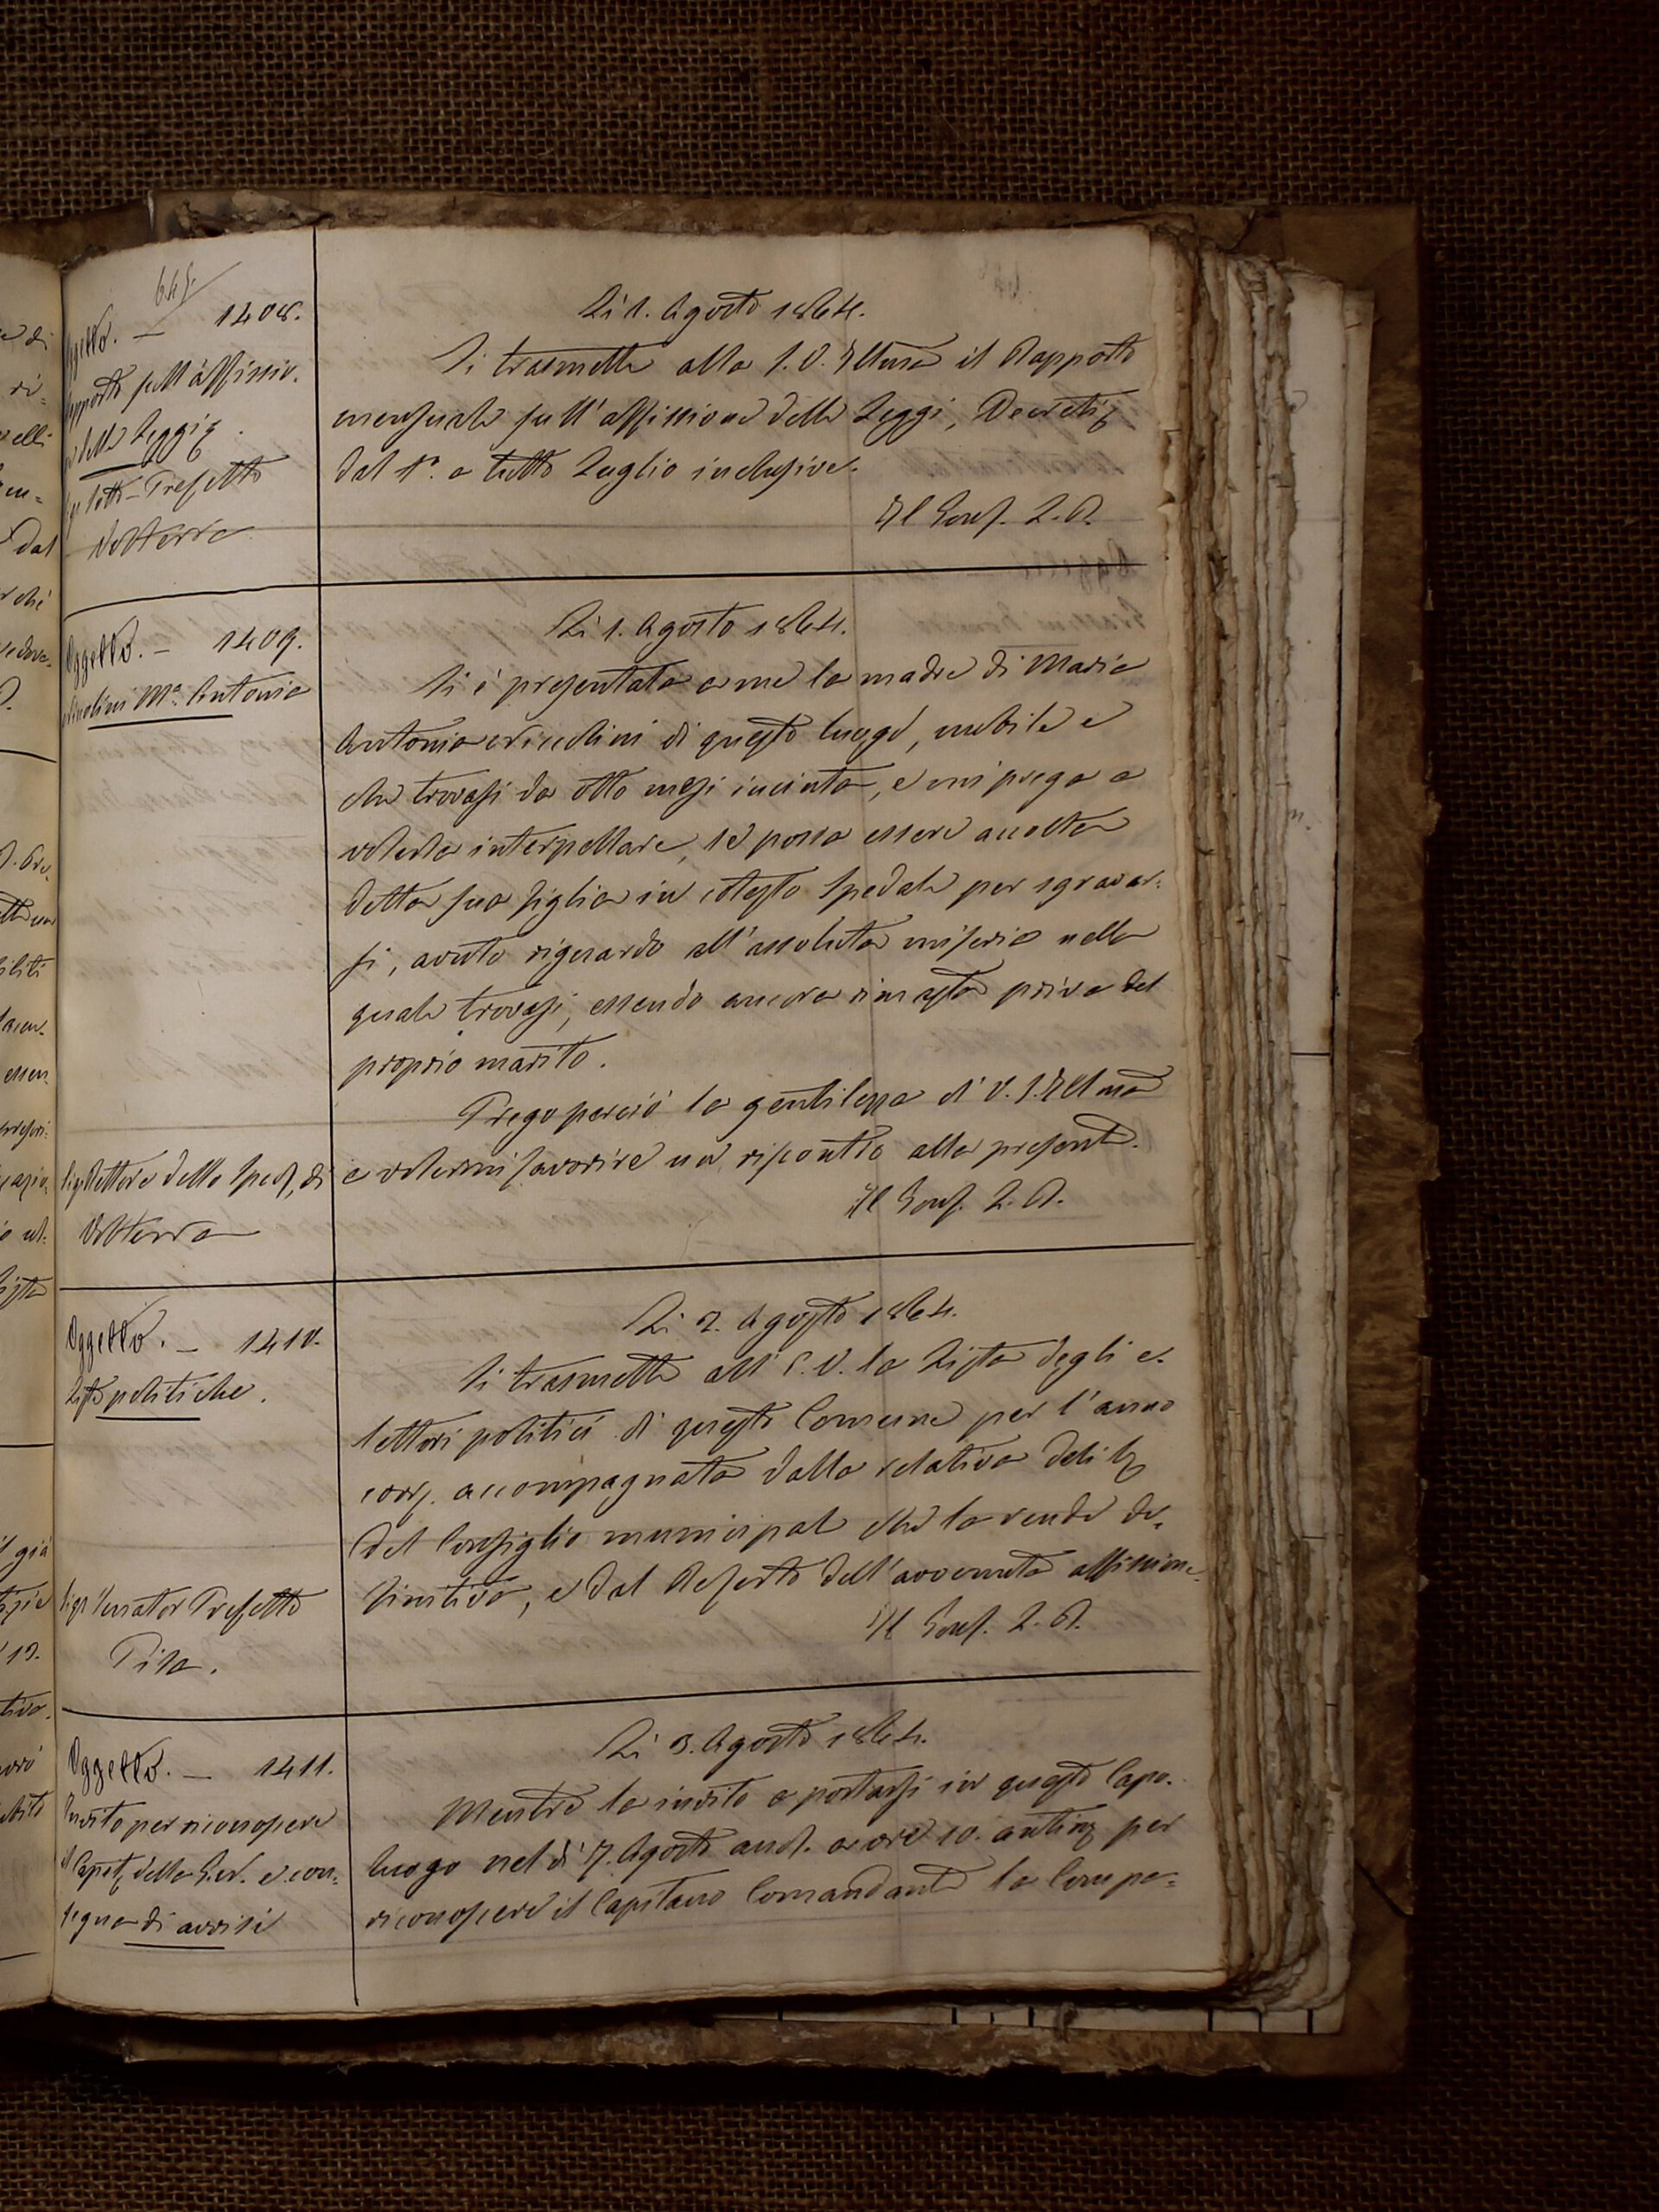 645
Oggetto. — 1408.
Rapporto sull'affissio.
ne delle Leggi
Sig. Sotto-Prefetto
Volterra
Li 1. Agosto 1864.
Si trasmette alla S. V. Illma il Rapporto
mensuale sull'affissione delle Leggi, Decreti
dal 1°. a tutto Luglio inclusive.
Il Gonf. L. R.
Oggetto. — 1409.
Mª. Antonia
Li 1. Agosto 1864.
Si è presentata a me la madre di Maria
Antonia di questo luogo, nubile e
che trovasi da otto mesi incinta, e mi prega a
volerla interpellare, se possa essere accolta
detta sua figlia in cotesto Spedale per sgravar-
si, avuto riguardo all'assoluta miseria nella
quale trovasi, essendo ancora rimasta priva del
proprio marito.
Prego perciò la gentilezza di V. S. Illma
a volermi favorire un riscontro alla presente.
Il Gonf. L. R.
Sig. Rettore dello Sped. di
Volterra
Oggetto. — 1410.
Liste politiche.
Li 2. Agosto 1864.
Si trasmette all S. V. la Lista degli e-
lettori politici di questo Comune per l'anno
corr. accompagnata dalla relativa Delib
del Consiglio municipale che la rende de-
finitiva, e dal Referto dell'avvenuta affissione.
Il Gonf. L. R.
Sigr Senator Prefetto
Pisa.
Oggetto. — 1411.
Invito per riconoscere
il Capit. della G. N. e con-
segna di avvisi
Li 3. Agosto 1864.
Mentre la invito a portarsi in questo Capo-
luogo nel dì 7. Agosto and. a ore 10. antim per
riconoscere il Capitano Comandante la Compa-